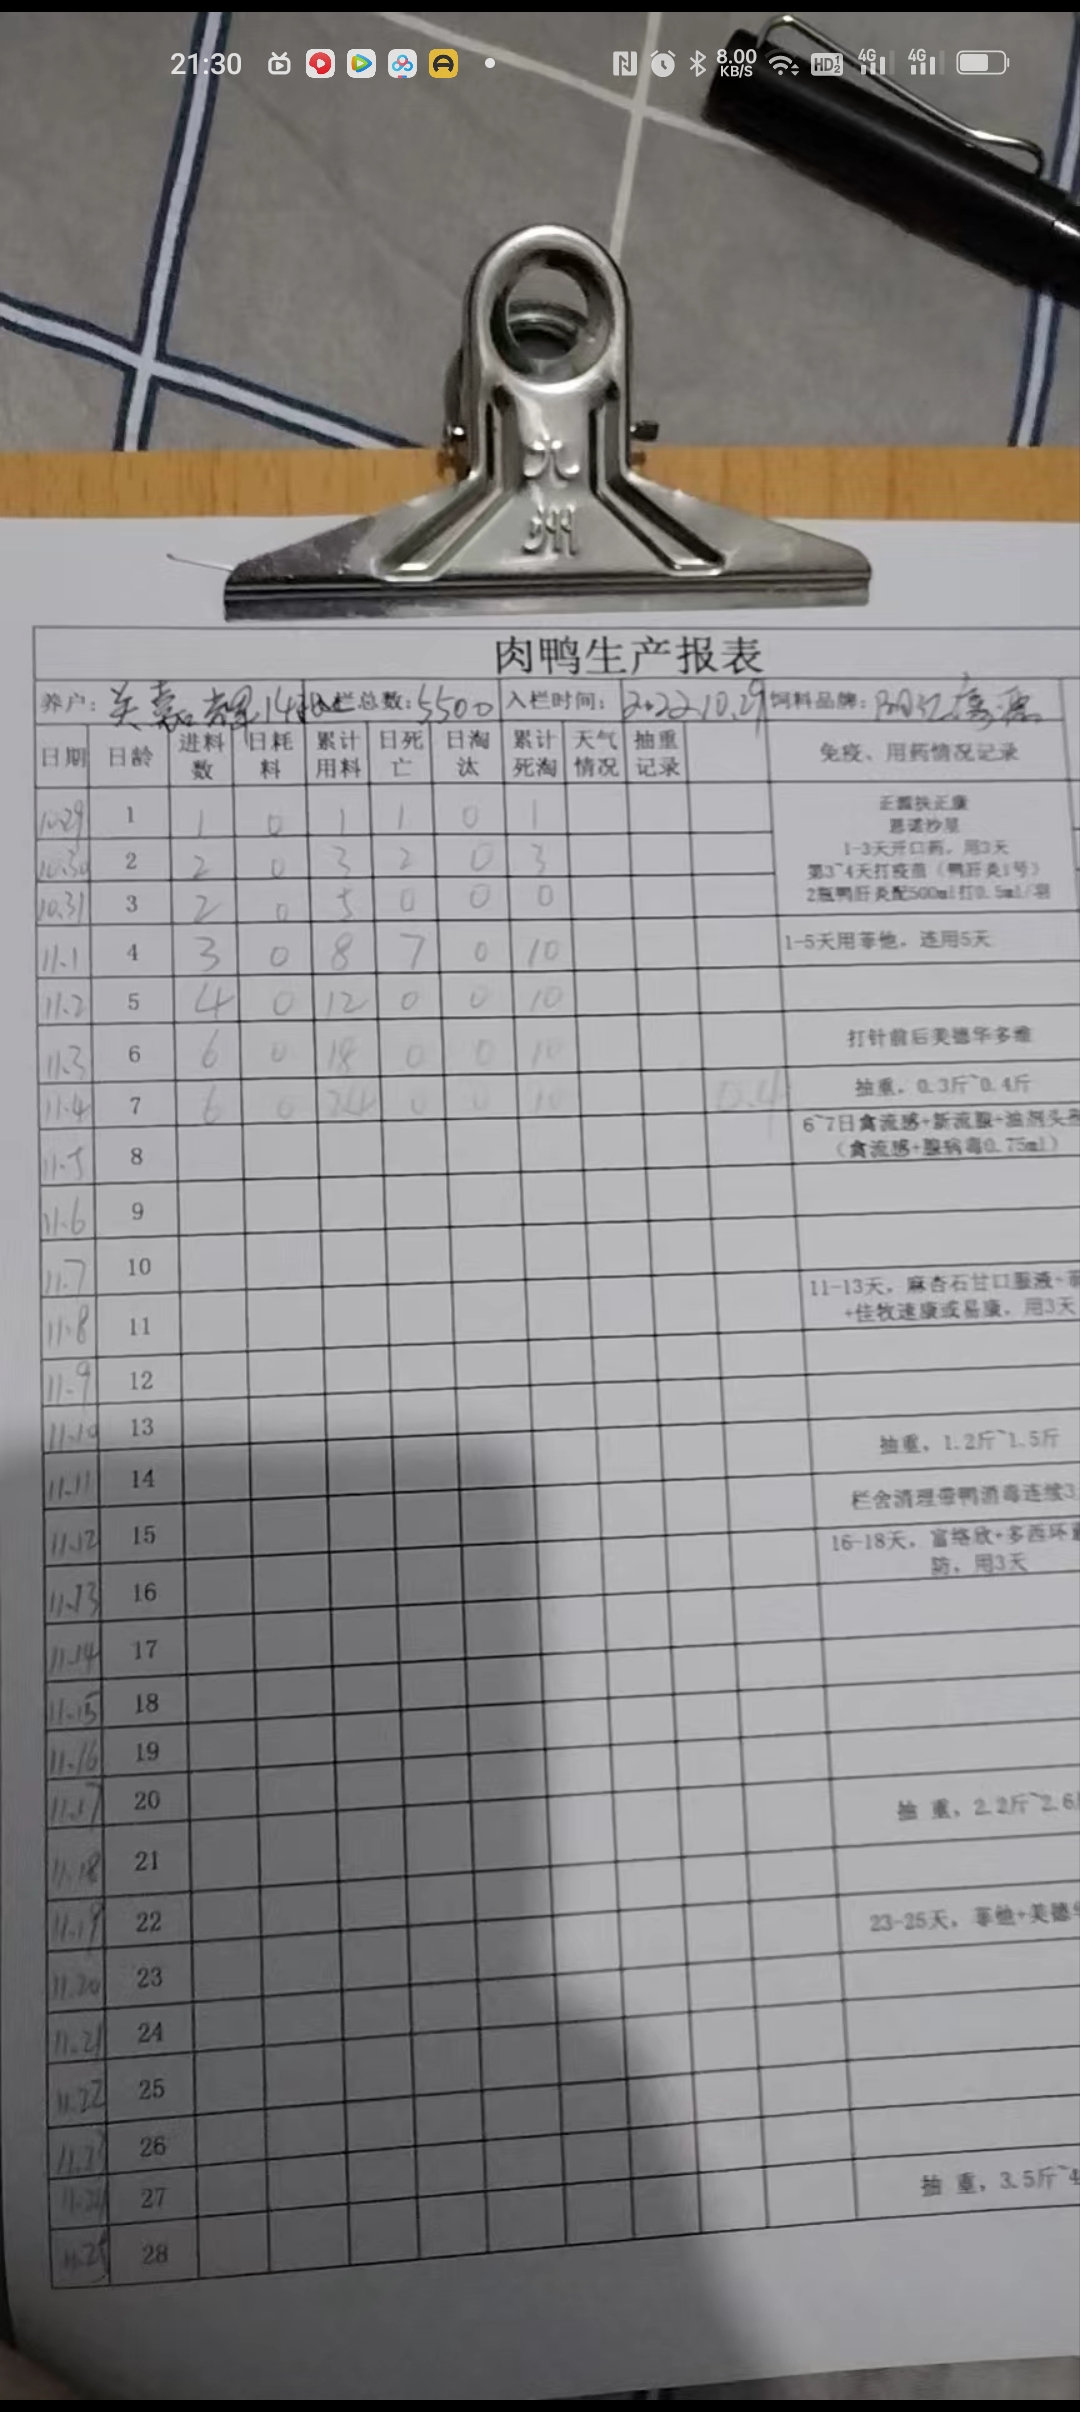 21:30 8.00 KB/S HD 4G 4G
九
州
肉鸭生产报表
养户: 入栏总数: 5500 入栏时间: 2022.10.29 饲料品牌:
日期 日龄 进料数 日耗料 累计用料 日死亡 日淘汰 累计死淘 天气情况 抽重记录 免疫、用药情况记录
10.29 1 1 0 1 1 0 1
正源扶正康
恩诺沙星
1-3天开口药，用3天
10.30 2 2 0 3 2 0 3
第3~4天打疫苗（鸭肝炎1号）
10.31 3 2 0 5 0 0 0
2瓶鸭肝炎配500ml打0.5ml/羽
11.1 4 3 0 8 7 0 10 1-5天用菲他，连用5天
11.2 5 4 0 12 0 0 10
11.3 6 6 0 18 0 0 10 打针前后美德华多维
11.4 7 6 0 24 0 0 10 0.4 抽重，0.3斤~0.4斤
11.5 8 6~7日禽流感+新流腺+油剂头孢
（禽流感+腺病毒0.75ml）
11.6 9
11.7 10
11.8 11 11-13天，麻杏石甘口服液+
+佳牧速康或易康，用3天
11.9 12
11.10 13
11.11 14 抽重，1.2斤~1.5斤
11.12 15 栏舍清理带鸭消毒连续3
11.13 16 16-18天，富络欣+多西环
防，用3天
11.14 17
11.15 18
11.16 19
11.17 20
11.18 21 抽 重，2.2斤~2.6
11.19 22
11.20 23 23-25天，菲他+美德华
11.21 24
11.22 25
11.23 26
11.24 27
11.25 28 抽 重，3.5斤~4